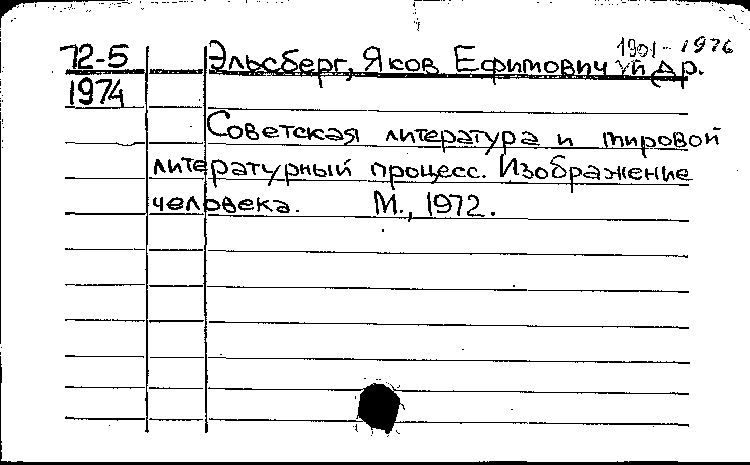 1901-1976
72-5 Эльсберг, Яков Ефимович и др.
1974
Советская литература и мировой
литературный процесс. Изображение
человека. М., 1972.